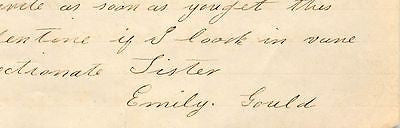 as soon as you get this
if I loock in vane
ctionate Sister
Emily. Gould